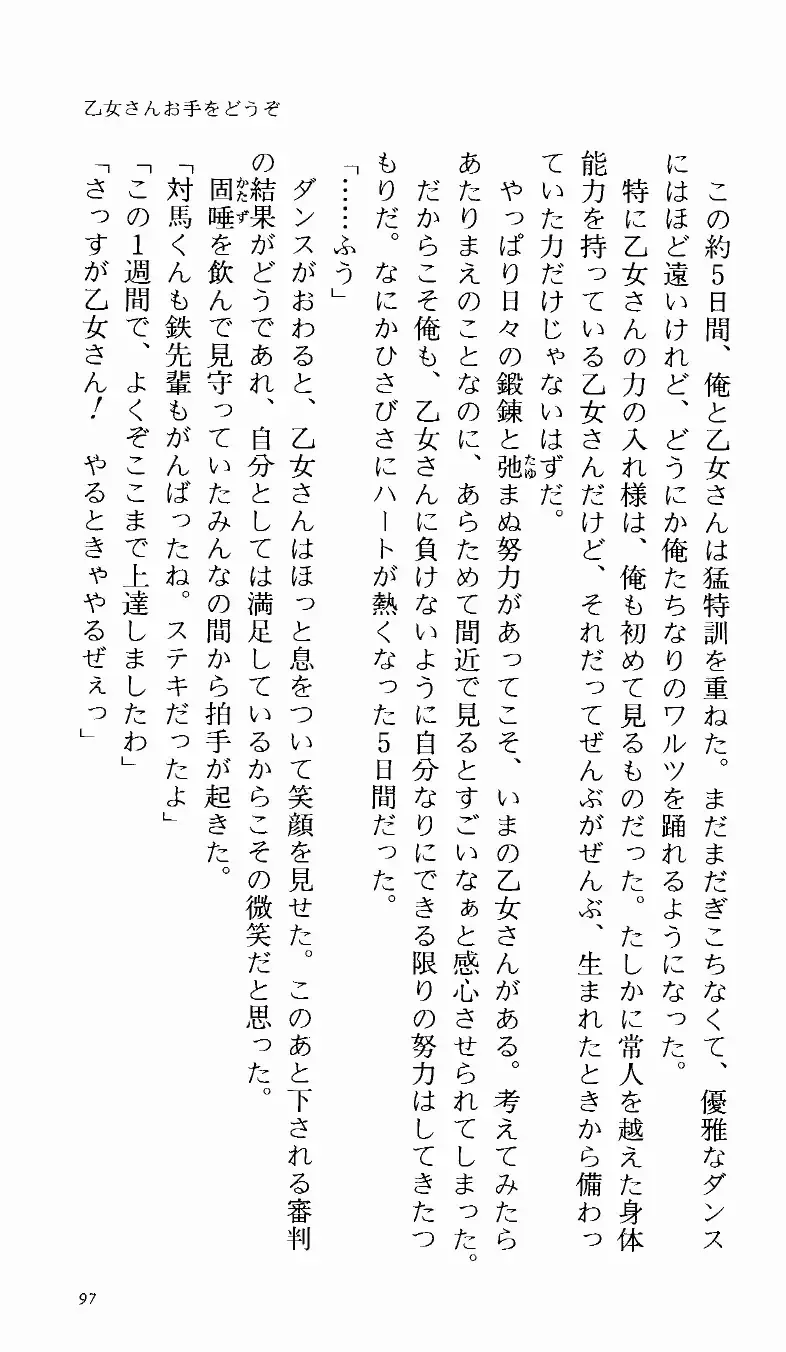 乙女さんお手をどうぞ
この約5日間、俺と乙女さんは猛特訓を重ねた。まだまだぎこちなくて、優雅なダンス
にはほど遠いけれど、どうにか俺たちなりのワルツを踊れるようになった。
特に乙女さんの力の入れ様は、俺も初めて見るものだった。たしかに常人を越えた身体
能力を持っている乙女さんだけど、それだってぜんぶがぜんぶ、生まれたときから備わっ
ていた力だけじゃないはずだ。
やっぱり日々の鍛錬と弛まぬ努力があってこそ、いまの乙女さんがある。考えてみたら
あたりまえのことなのに、あらためて間近で見るとすごいなぁと感心させられてしまった。
だからこそ俺も、乙女さんに負けないように自分なりにできる限りの努力はしてきたつ
もりだ。なにかひさびさにハートが熱くなった5日間だった。
「……ふう」
ダンスがおわると、乙女さんはほっと息をついて笑顔を見せた。このあと下される審判
の結果がどうであれ、自分としては満足しているからこその微笑だと思った。
固唾を飲んで見守っていたみんなの間から拍手が起きた。
「対馬くんも鉄先輩もがんばったね。ステキだったよ」
「この1週間で、よくぞここまで上達しましたわ」
「さっすが乙女さん！　やるときゃやるぜぇっ」
97